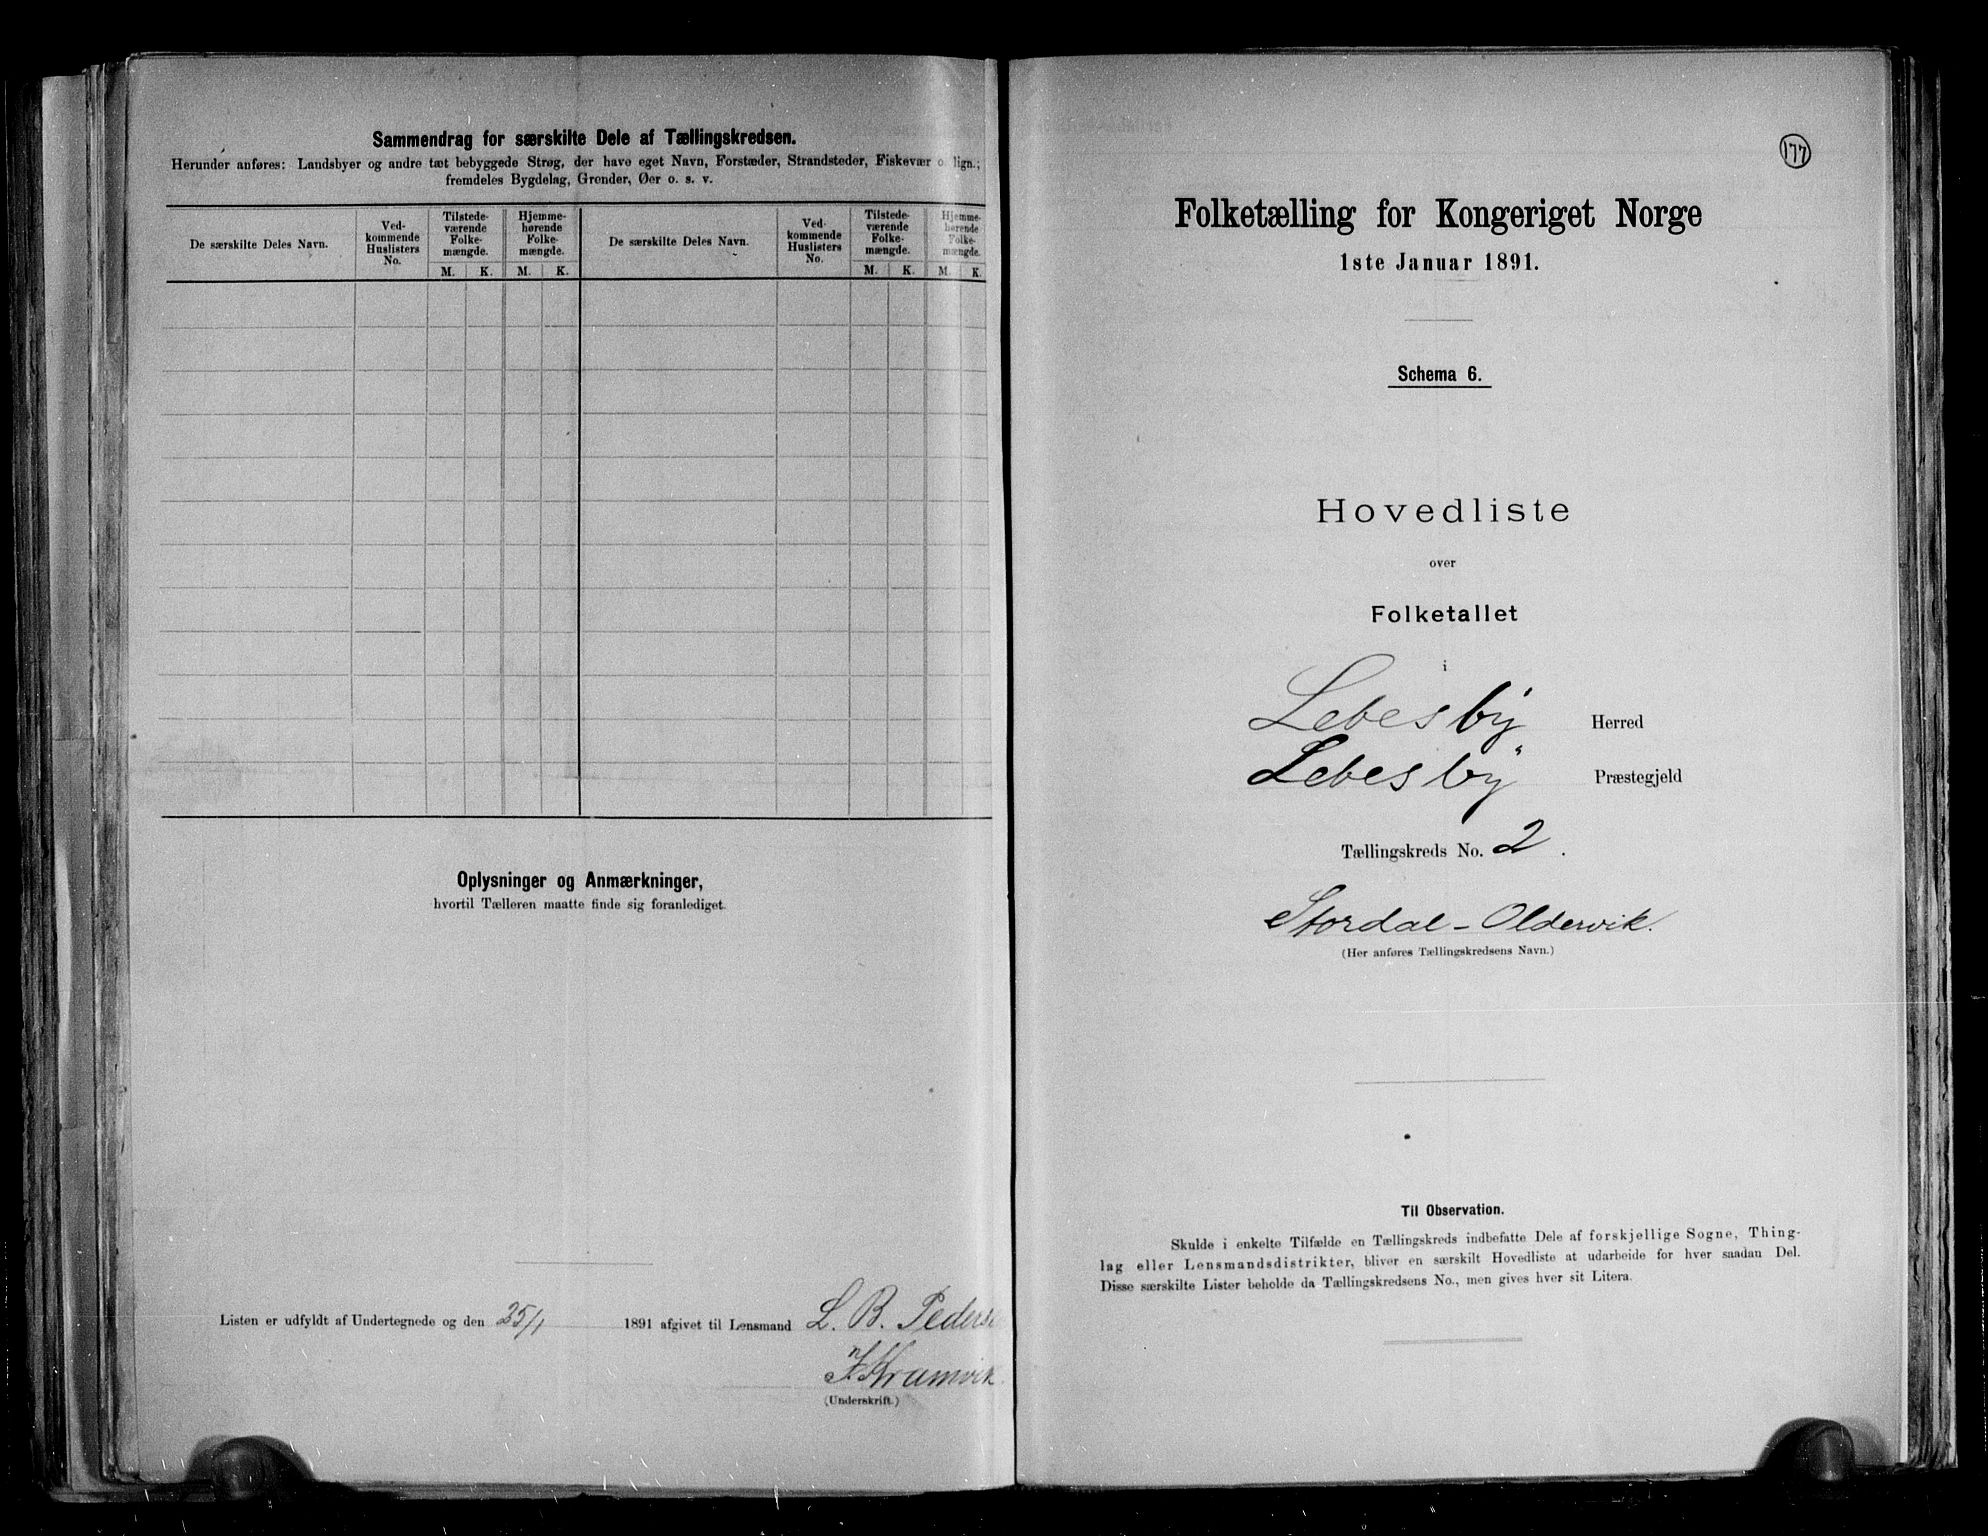 Sammendrag for særskilte Dele af Tællingskredsen.
Herunder anføres: Landsbyer og andre tæt bebyggede Strøg, der have eget Navn, Forstæder, Strandsteder, Fiskevær o. lign.;
fremdeles Bygdelag, Grender, Øer o. s. v.
De særskilte Deles Navn.
Ved-
kommende
Huslisters
No.
Tilstede-
værende
Folke-
mængde.
M. K.
Hjemme-
hørende
Folke-
mængde.
M. K.
De særskilte Deles Navn.
Ved-
kommende
Huslisters
No.
Tilstede-
værende
Folke-
mængde.
M. K.
Hjemme-
hørende
Folke-
mængde.
M. K.
Oplysninger og Anmærkninger,
hvortil Tælleren maatte finde sig foranlediget.
Listen er udfyldt af Undertegnede og den 25/1 1891 afgivet til Lensmand L. B. Peders
J. Kramvik
(Underskrift.)
177
Folketælling for Kongeriget Norge
1ste Januar 1891.
Schema 6.
Hovedliste
over
Folketallet
i
Lebesby Herred
Lebesby Præstegjeld
Tællingskreds No. 2.
Stordal-Oldervik.
(Her anføres Tællingskredsens Navn.)
Til Observation.
Skulde i enkelte Tilfælde en Tællingskreds indbefatte Dele af forskjellige Sogne, Thing-
lag eller Lensmandsdistrikter, bliver en særskilt Hovedliste at udarbeide for hver saadan Del.
Disse særskilte Lister beholde da Tællingskredsens No., men gives hver sit Litera.